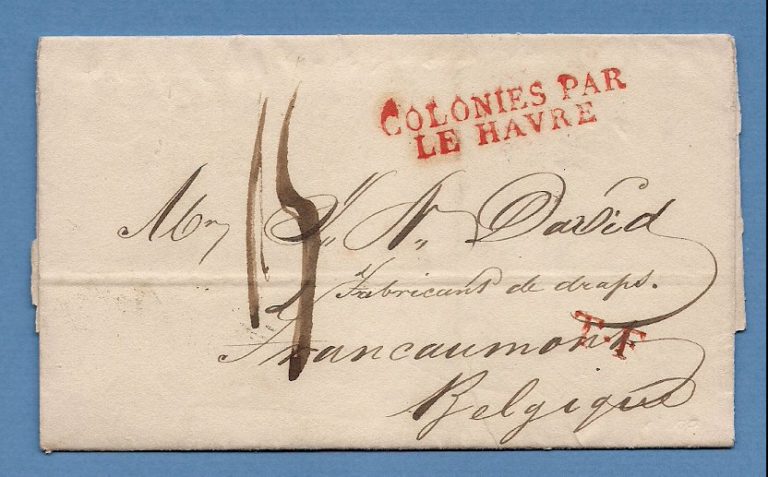 COLONIES PAR
LE HAVRE
15
Mr J. N. David
fabricant de draps.
à Francaumont
T.F
Belgique